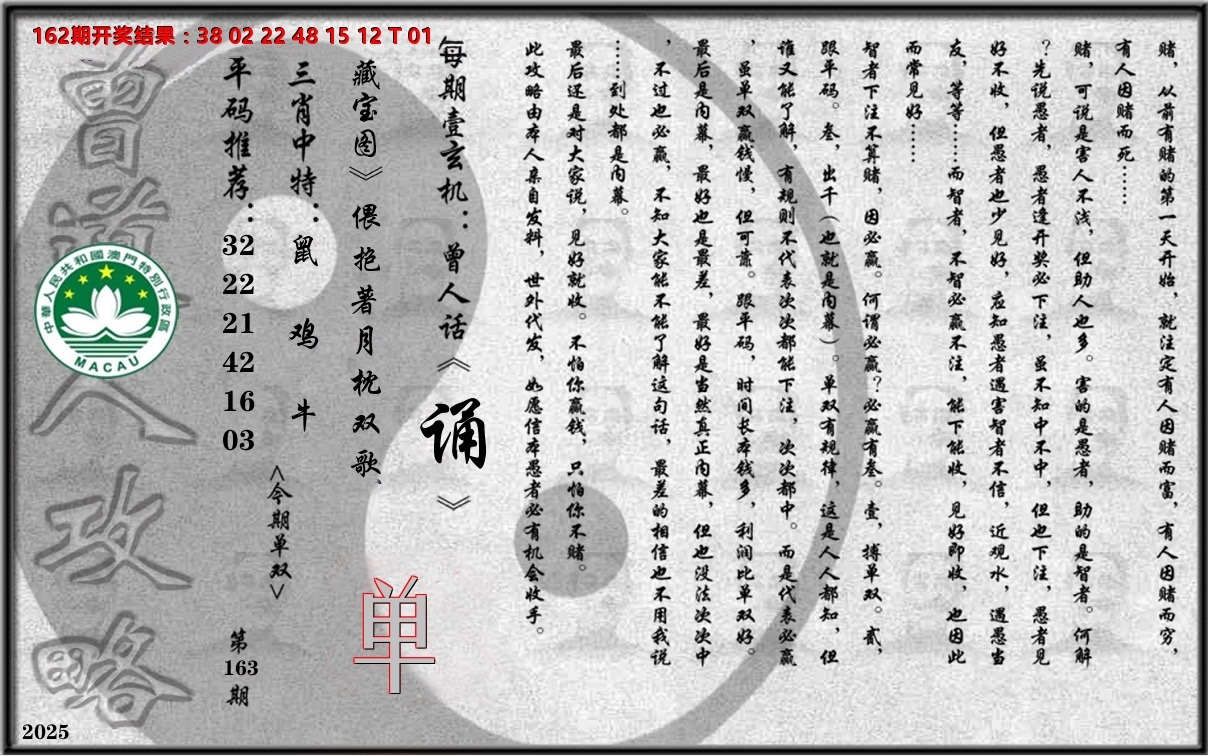 162期开奖结果：38 02 22 48 15 12 T 01
赌，从前有赌的第一天开始，就注定有人因赌而富，有人因赌而穷，
有人因赌而死……
赌，可说是害人不浅，但助人也多。害的是愚者，助的是智者。何解
？先说愚者，愚者逢开奖必下注，虽不知中不中，但也下注，愚者见
好不收，但愚者也少见好，应知愚者遇害智者不信，近观水，遇愚当
友，等等……而智者，不智必赢不注，能下能收，见好即收，也因此
而常见好……
智者下注不算赌，因必赢。何谓必赢？必赢有叁。壹，搏单双。贰，
跟平码。叁，出千（也就是内幕）。单双有规律，这是人人都知，但
谁又能了解，有规则不代表次次都能下注，次次都中。而是代表必赢
，虽单双赢钱慢，但可靠。跟平码，时间长本钱多，利润比单双好。
最后是内幕，最好也是最差，最好是当然真正内幕，但也没法次次中
，不过也必赢，不知大家能不能了解这句话，最差的相信也不用我说
……到处都是内幕。
最后还是对大家说，见好就收。不怕你赢钱，只怕你不赌。
此攻略由本人亲自发料，世外代发，如愿信本愚者必有机会收手。
每期壹玄机：曾人话《诵》
藏宝图》偎抱著月枕双歌、
单
三肖中特：鼠 鸡 牛
<今期单双>
平码推荐：32 22 21 42 16 03
第163期
曾道人攻略
中華人民共和國澳門特別行政區
MACAU
2025